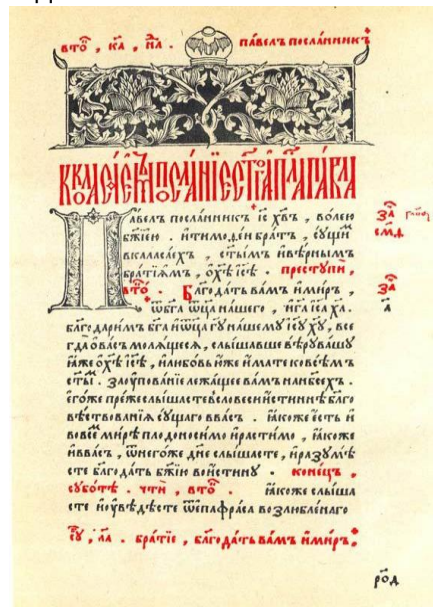 вто҇ , ка҃ , нл҃ . па́велъ посла́нникъ
К КОЛАСАЕѠМЪ ПОСЛАНЇЕ СТГО АПЛА ПАВЛА
Па́велъ посла́нникъ і҃с х҃въ , во́лею
бж҃їею . и҆ тимоѳе́й бра́тъ , су́щи҇
в каласа́ехъ , ст҃ы́мъ и҆ вѣ́рнымъ
бра́тїѧмъ , ѡ҆ х҃ѣ і҃сѣ . преступѝ ,
вто҇ . Благода́ть ва́мъ и҆ ми́ръ ,
ѿ бг҃а ѿц҃а на́шего , и҆ г҃а і҃са х҃а .
благодари́мъ бг҃а и҆ ѿц҃а г҃у на́шему і҃су х҃у , все
гда̀ ѡ҆ ва́съ молѧ́щесѧ , слы́шавше вѣ́ру ва́шу
ꙗ҆́же ѡ҆ х҃ѣ і҃сѣ , и҆ любо́вь ю҆́же и҆́мате ко всѣ́мъ
ст҃ы҇ . за ᲂу҆пова́нїе лежа́щее ва́мъ на нб҃сѐхъ .
є҆го́же пре́же слы́шасте в словесѝ и҆́стинны бл҃го
вѣ́ствованїѧ су́щаго в ва́съ . ꙗ҆́коже є҆́сть и҆
во все́мъ ми́рѣ плодоно́симо и҆ расти́мо , ꙗ҆́коже
и҆ в ва́съ , ѿ него́же дн҃е слы́шасте , и҆ разумѣ́
сте благода́ть бж҃їю вои́стину . коне́цъ ,
субо́тѣ . чтѝ , вто҇ . ꙗ҆́коже слы́ша
сте и҆ ᲂу҆вѣ́дѣсте ѿ є҆пафра́са возлю́бленаго
бра́тїе , благода́ть ва́мъ и҆ ми́ръ .
за҇
за҇
а
ро҇д